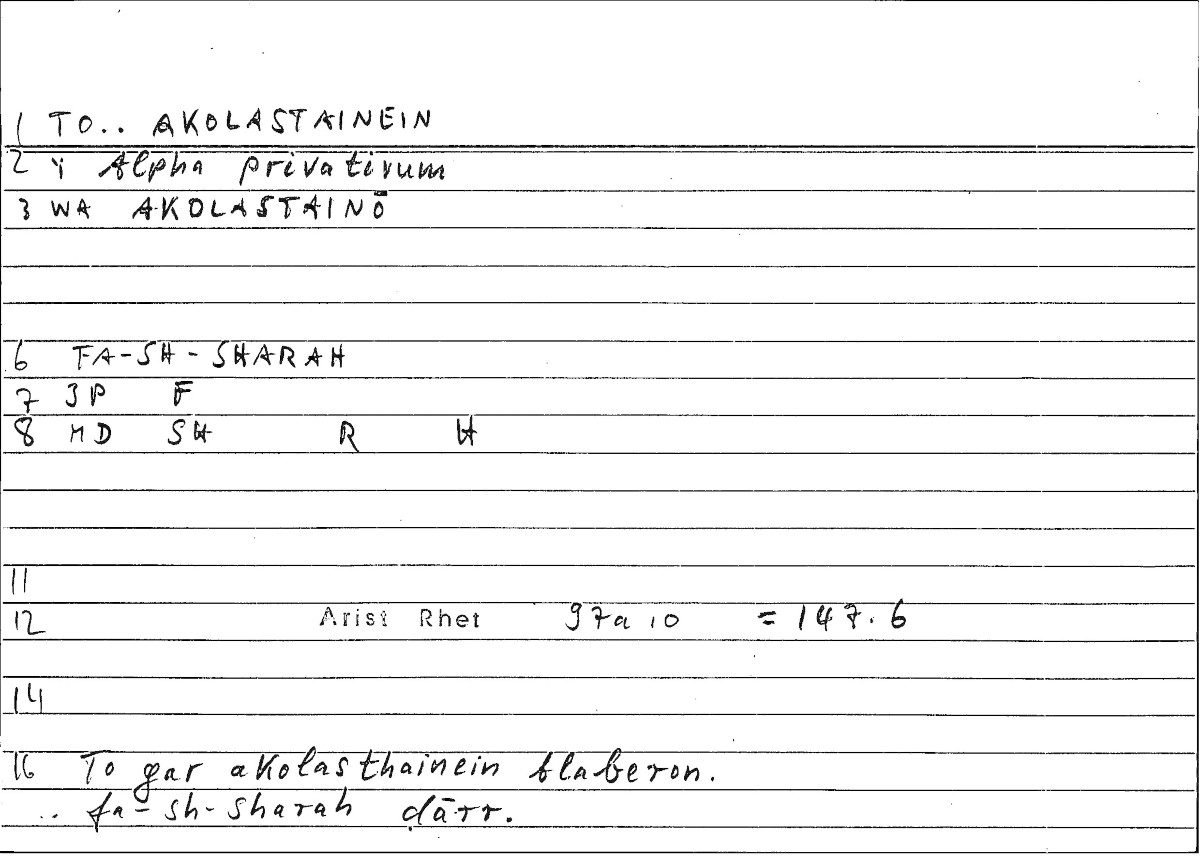 1 TO.. AKOLASTAINEIN
2 Ÿ Alpha privativum
3 WA AKOLASTAINŌ
6 FA-SH-SHARAH
7 3P F
8 MD SH R H
11
12 Arist Rhet 97a10 = 147.6
14
16 To gar akolasthainein blaberon.
.. fa-sh-sharah dārr.